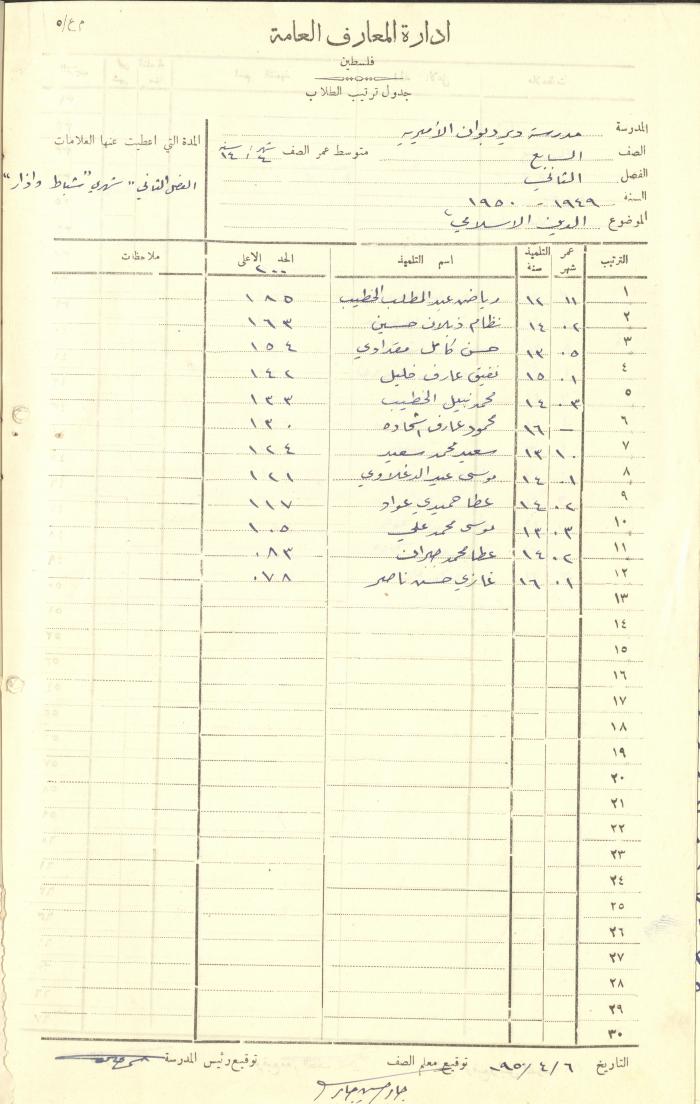 م ع/٥
ادارة المعارف العامة
فلسطين
جدول ترتيب الطلاب
المدرسة مدرسة دير ديوان الأميرية
الصف السابع متوسط عمر الصف شهر ٤ / سنة ١٤
المدة التي اعطيت عنها العلامات
الفصل الثاني
الفصل الثاني "شهري شباط واذار"
السنة ١٩٤٩ - ١٩٥٠
الموضوع الدين الاسلامي
الترتيب عمر التلميذ شهر سنة اسم التلميذ الحد الاعلى ٢٠٠ ملاحظات
١ ١١ ١٢ رياض عبد المطلب الخطيب ١٨٥
٢ ٠٢ ١٤ نظام حسين ١٦٣
٣ ٠٥ ١٣ حسن كامل مقدادي ١٥٤
٤ ٠١ ١٥ عارف خليل ١٤٢
٥ ٠٣ ١٤ محمد نبيل الخطيب ١٣٣
٦ — ١٦ محمود عارف شحاده ١٣٠
٧ ١٠ ١٣ سعيد محمد سعيد ١٢٤
٨ ٠١ ١٤ موسى عبد ١٢١
٩ ٠٢ ١٤ عطا حميدي عواد ١١٧
١٠ ٠٣ ١٣ موسى محمد علي ١٠٥
١١ ٠٢ ١٤ عطا محمد جبران ٠٨٣
١٢ ٠١ ١٦ غازي حسن ناصر ٠٧٨
١٣
١٤
١٥
١٦
١٧
١٨
١٩
٢٠
٢١
٢٢
٢٣
٢٤
٢٥
٢٦
٢٧
٢٨
٢٩
٣٠
التاريخ ٦/٤/٩٥٠ توقيع معلم الصف توقيع رئيس المدرسة